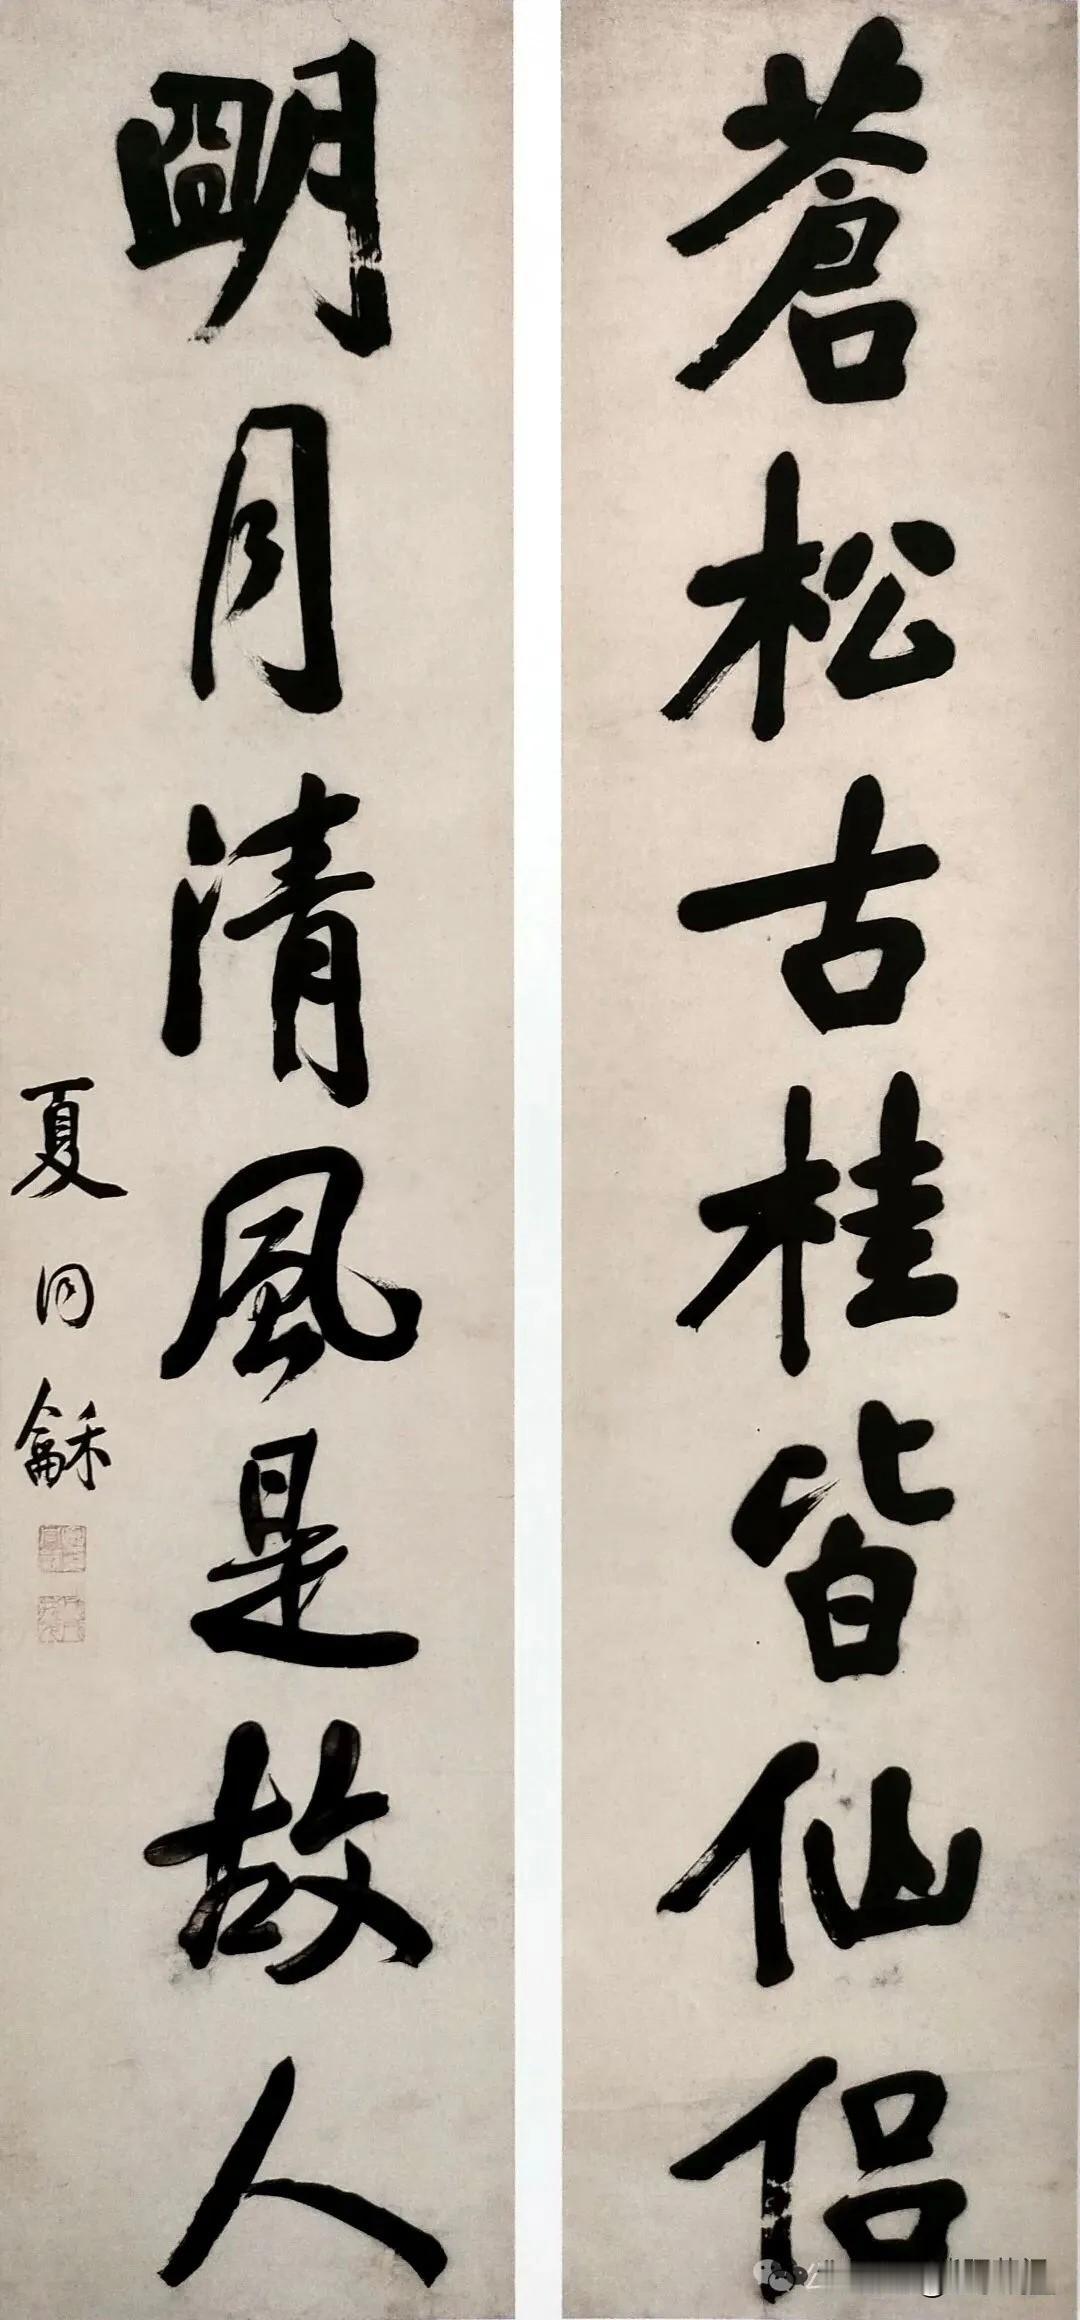 蒼松古桂皆仙侣
朙月清風是故人
夏同龢